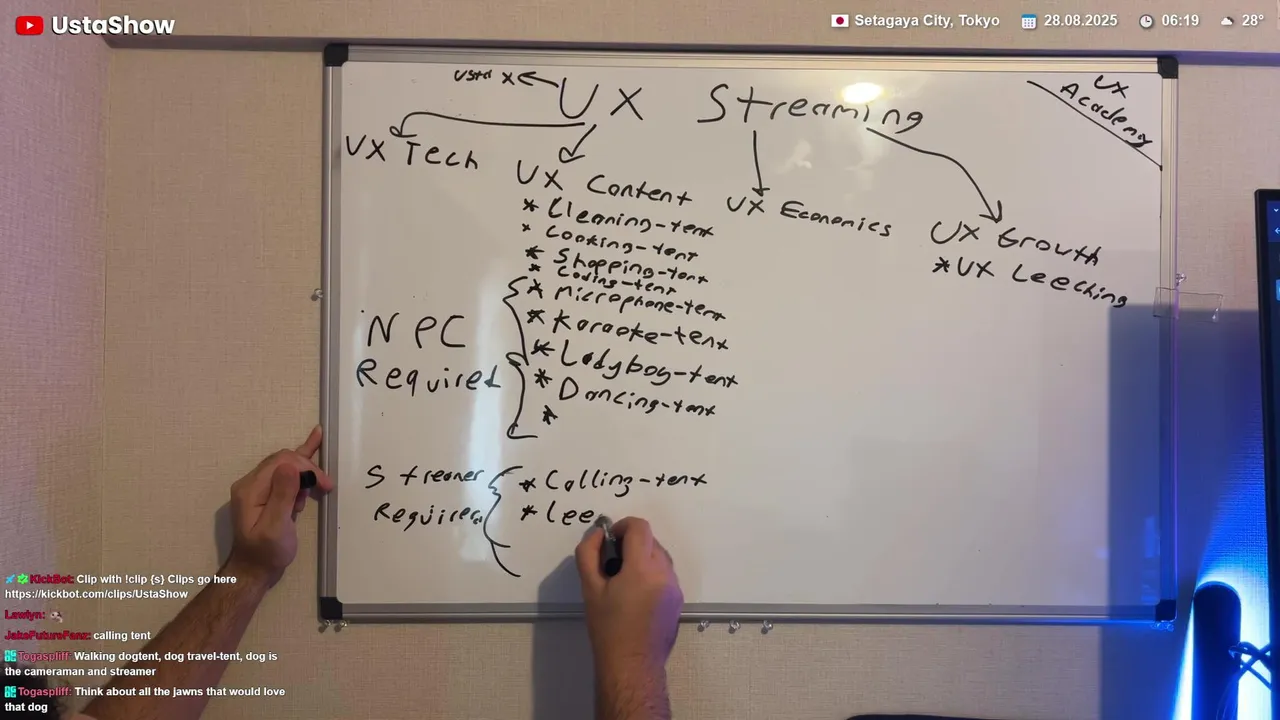 UstaShow
Setagaya City, Tokyo
28.08.2025
06:19
28°
UstaX
UX Streaming
UX
Academy
UX Tech
UX Content
* Cleaning-tent
* Cooking-tent
* Shopping-tent
* Coding-tent
* Microphone-tent
* Karaoke-tent
* Ladyboy-tent
* Dancing-tent
*
UX Economics
UX Growth
*UX Leeching
NPC
Required
Streamer
Required
* Calling-tent
* Lee
KickBot: Clip with !clip {s} Clips go here
https://kickbot.com/clips/UstaShow
Lawlyn:
JakeFutureFanz: calling tent
Togaspliff: Walking dogtent, dog travel-tent, dog is
the cameraman and streamer
Togaspliff: Think about all the jawns that would love
that dog